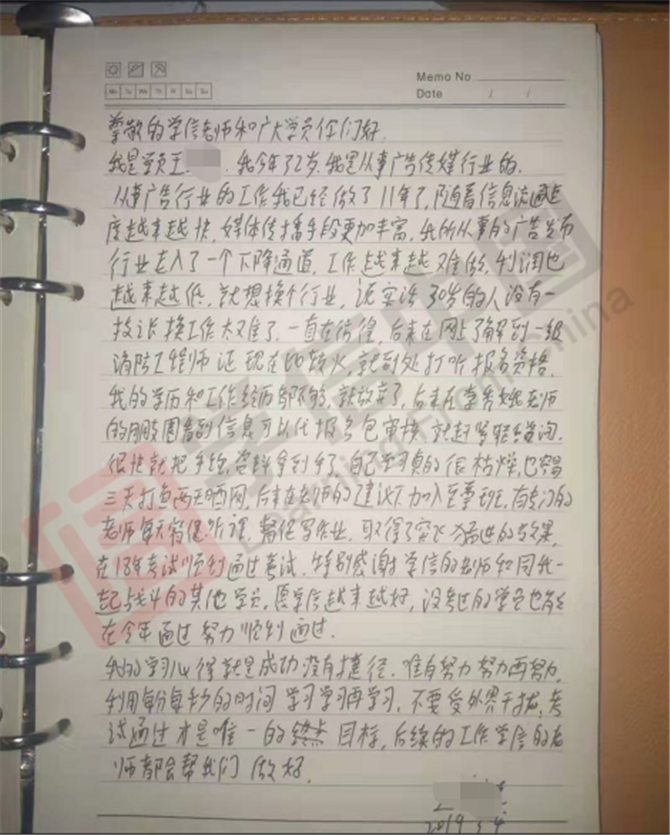 Memo No
Mo Tu We Th Fr Sa Su
Date / /
尊敬的学信老师和广大学员你们好.
我是学员王 . 我今年32岁. 我是从事广告传媒行业的.
从事广告行业的工作我已经做了11年了, 随着信息流通速
度越来越快, 媒体传播手段更加丰富, 我所从事的广告发布
行业走入了一个下降通道, 工作越来越难做, 利润也
越来越低. 就想换个行业, 说实话30岁的人没有一
技之长换工作太难了. 一直在彷徨, 后来在网上了解到一级
消防工程师证现在比较火, 就到处打听报名资格.
我的学历和工作经历都不够, 就放弃了, 后来在 老师
的朋友圈看到信息可以代报名包审核, 就赶紧联系咨询.
很快就把手续, 资料拿到手了, 自己学习真的很枯燥, 也容易
三天打鱼两天晒网, 后来在老师的建议下加入至尊班, 有专门的
老师每天督促听课, 督促写作业, 取得了突飞猛进的效果,
在18年考试顺利通过考试. 特别感谢学信的老师和同我一
起战斗的其他学员, 愿学信越来越好, 没考过的学员也能
在今年通过努力顺利通过.
我的学习心得就是成功没有捷径. 唯有努力努力再努力,
利用每分每秒的时间学习学习再学习, 不要受外界干扰, 考
试通过才是唯一的终点目标, 后续的工作学信的老
师都会帮我们做好.
2019.3.4
学信中国
Learning From China